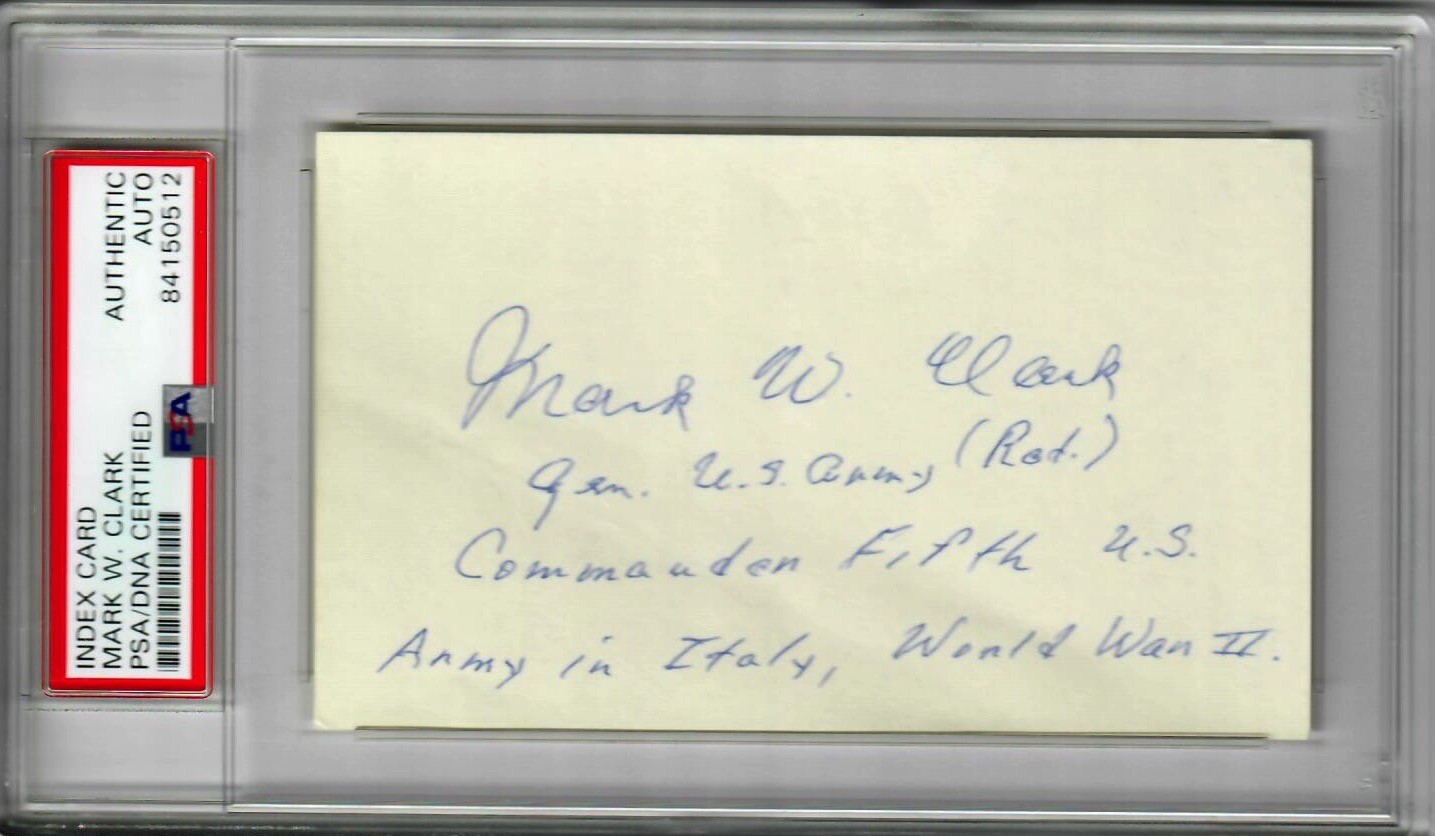 INDEX CARD
MARK W. CLARK
PSA/DNA CERTIFIED
AUTHENTIC
AUTO
84150512
PSA
Mark W. Clark
Gen. U.S. Army (Ret.)
Commander Fifth U.S.
Army in Italy, World War II.